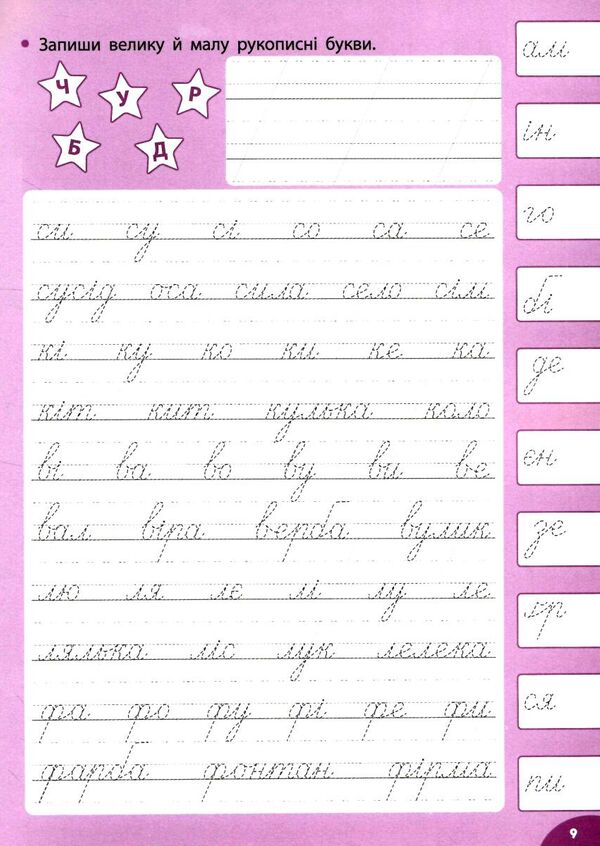 Запиши велику й малу рукописні букви.
Ч У Р
Б Д
си су сі со са се
сусід оса сила село сім
кі ку ко ки ке ка
кіт кит кулька коло
ві ва во ву ви ве
вал віра верба вулик
лю ля лє лі лу ле
лялька ліс лук лелека
фа фо фу фі фе фи
фарба фонтан фірма
ам
ін
го
бі
де
єн
зе
яр
ся
пи
9